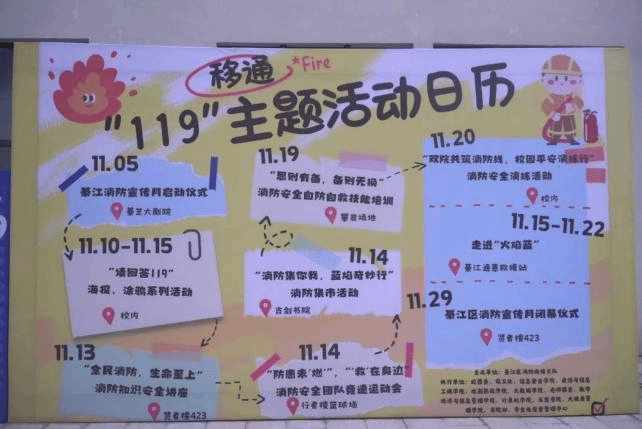 移通
Fire
“119”主题活动日历
11.05
綦江消防宣传月启动仪式
綦艺大剧院
11.10-11.15
“请回答119”
海报、涂鸦系列活动
校内
11.13
“全民消防，生命至上”
消防知识安全讲座
贤者楼423
11.14
“防患未‘燃’”，“‘救’在身边”
消防安全团队竞速运动会
行者楼篮球场
11.14
“消防集你我，蓝焰奇妙行”
消防集市活动
古剑书院
11.19
“思则有备，备则无患”
消防安全自防自救技能培训
攀岩场地
11.20
“双院共筑消防线，校园平安演练行”
消防安全演练活动
校内
11.15-11.22
走进“火焰蓝”
綦江通惠救援站
11.29
綦江区消防宣传月闭幕仪式
贤者楼423
主办单位：綦江区消防救援支队